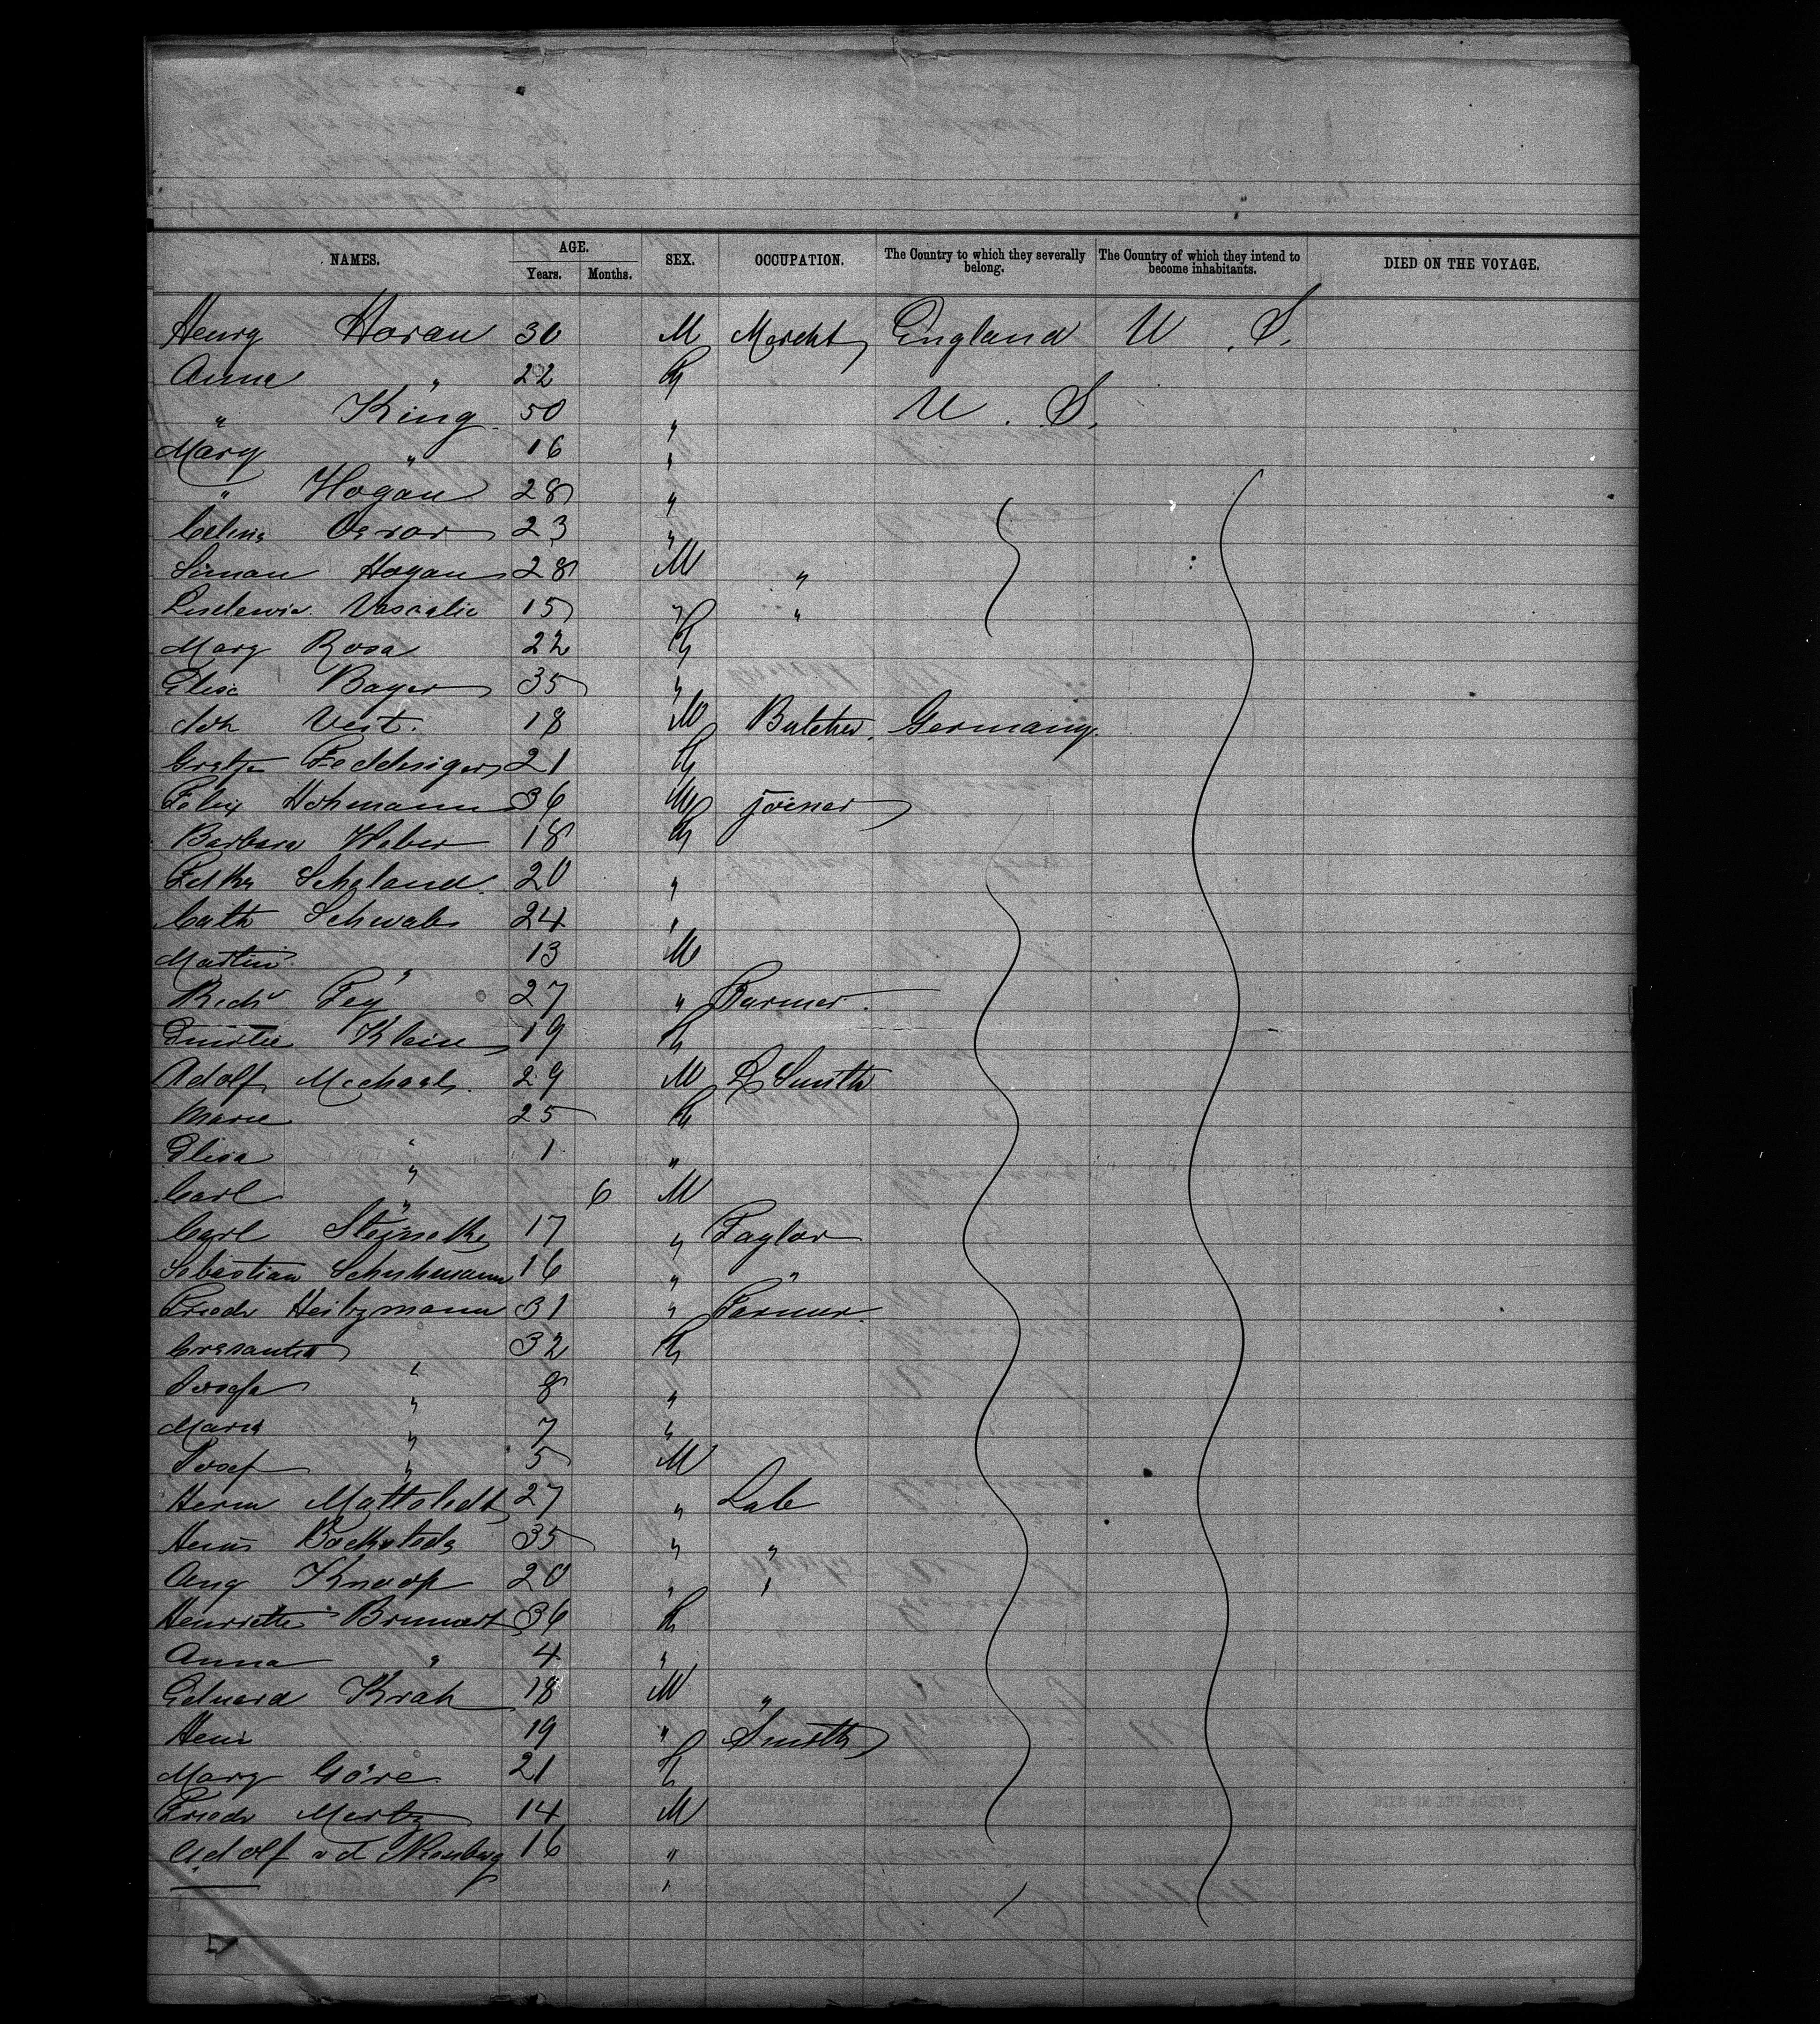 NAMES. AGE. Years. Months. SEX. OCCUPATION. The Country to which they severally belong. The Country of which they intend to become inhabitants. DIED ON THE VOYAGE.
Henry Horan 30 M Mercht England U. S.
Anna " 22 F
" King 50 " U. S.
Mary " 16 "
" Hogan 28 "
23 "
Simon Hogan 28 M "
15 " "
Mary Rosa 22 F
Elise Bayer 35 "
Joh Veit. 18 M Butcher. Germany
21 F
Felix Hohmann 36 M joiner
Barbara Weber 18 F
20 "
Cath Schwab 24 "
Martin " 13 M
Fey 27 " Farmer
Emilie Klein 19 F
Adolf Michaels 29 M L Smith
Marie " 25 F
Elisa " 1 "
Carl " 6 M
Carl 17 " Taylor
Sebastian Schuhmann 16 " "
Friedr Heitzmann 31 " Farmer.
" 32 F
Josefa " 8 "
Maria " 7 "
Josef " 5 M
Herm 27 " Lab
35 " "
Aug Knoop 20 " "
Henriette 36 F
Anna " 4 "
Eduard Krah 18 M "
19 " Smith
Marg Göre 21 F
Friedr Mertz 14 M
Adolf v d 16 "